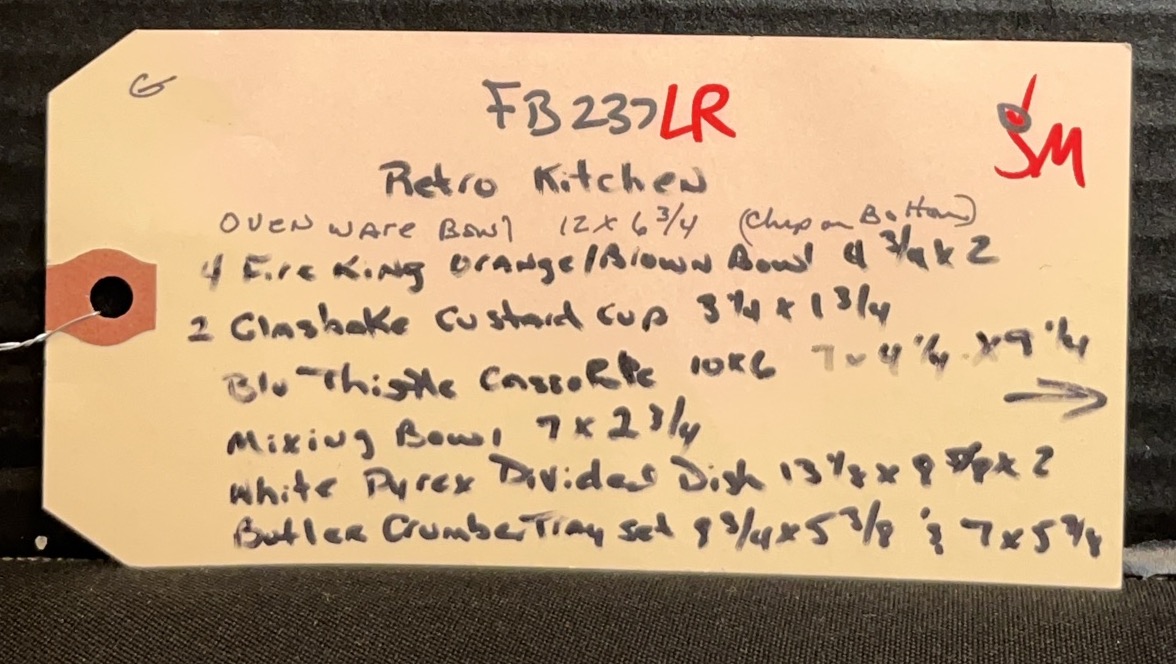 G
FB237LR
SM
Retro Kitchen
Oven ware Bowl 12 x 6 3/4 (Chip on Bottom)
4 Fire King Orange/Brown Bowl 4 3/4 x 2
2 Glasbake Custard Cup 3 1/4 x 1 3/4
Blu Thistle Cassorle 10x6 7 x 4 1/4 x 9 1/4
Mixing Bowl 7 x 2 3/4
White Pyrex Divided Dish 13 1/8 x 8 5/8 x 2
Butler Crumbe Tray set 8 3/4 x 5 3/8 & 7 x 5 3/8